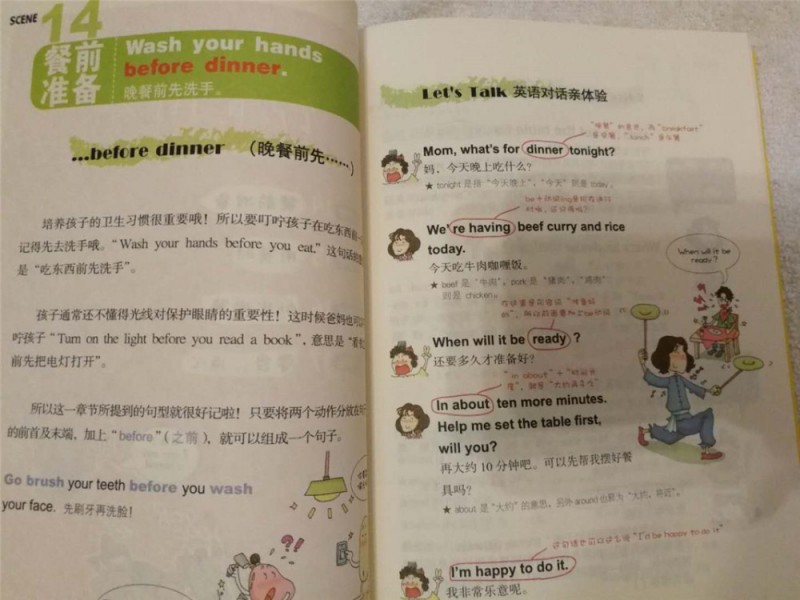 SCENE 14
餐前准备
Wash your hands
before dinner.
晚餐前先洗手。
...before dinner （晚餐前先……）
培养孩子的卫生习惯很重要哦！所以要叮咛孩子在吃东西前一
记得先去洗手哦。“Wash your hands before you eat.” 这句话的
是“吃东西前先洗手”。
孩子通常还不懂得光线对保护眼睛的重要性！这时候爸妈也可以
咛孩子“Turn on the light before you read a book”，意思是“看
前先把电灯打开”。
所以这一章节所提到的句型就很好记啦！只要将两个动作分放在句
的前首及末端，加上“before”（之前），就可以组成一个句子。
Go brush your teeth before you wash
your face. 先刷牙再洗脸！
Let's Talk 英语对话亲体验
Mom, what's for dinner tonight?
妈，今天晚上吃什么？
★ tonight 是指“今天晚上”，“今天”则是 today。
We're having beef curry and rice
today.
今天吃牛肉咖喱饭。
★ beef 是“牛肉”，pork 是“猪肉”，“鸡肉”
则是 chicken。
When will it be
ready?
When will it be ready ?
还要多久才准备好？
In about ten more minutes.
Help me set the table first,
will you?
再大约 10 分钟吧。可以先帮我摆好餐
具吗？
★ about 是“大约”的意思，另外 around 也解为“大约、将近”。
这句话也可以这么说 “I'd be happy to do it”
I'm happy to do it.
我非常乐意呢。